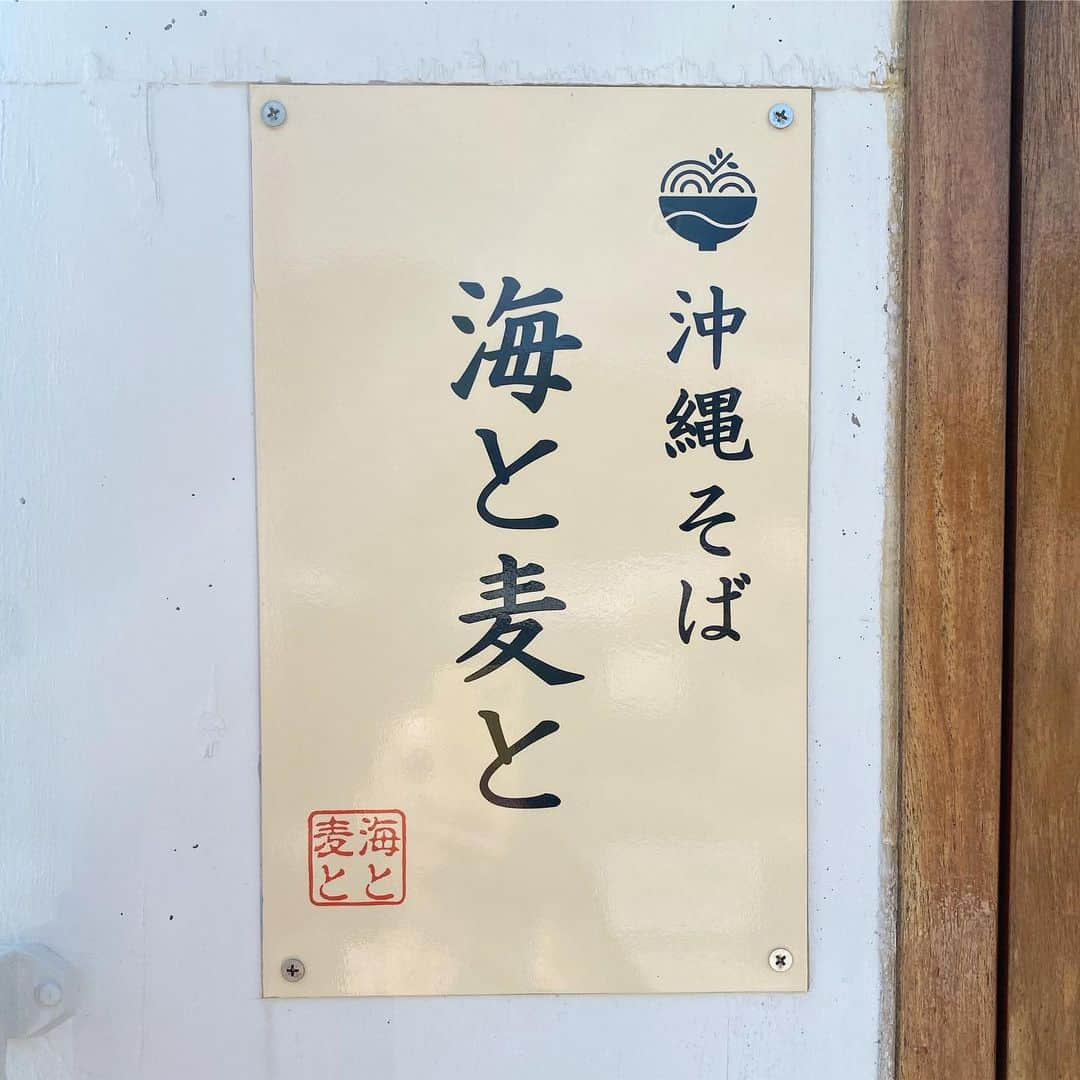 沖縄そば
海と麦と
海と
麦と